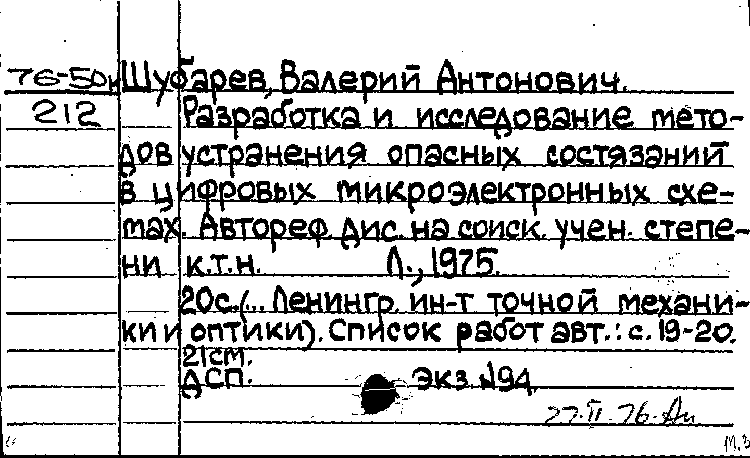 76-50к Шубарев, Валерий Антонович.
212 Разработка и исследование мето-
дов устранения опасных состязаний
в цифровых микроэлектронных схе-
мах. Автореф. дис. на соиск. учен. степе-
ни к.т.н. Л., 1975.
20с. (.. Ленингр. ин-т точной механи-
ки и оптики). Список работ авт.: с. 19-20.
21см.
ДСП. Экз. №94.
27.II.76.
М.З